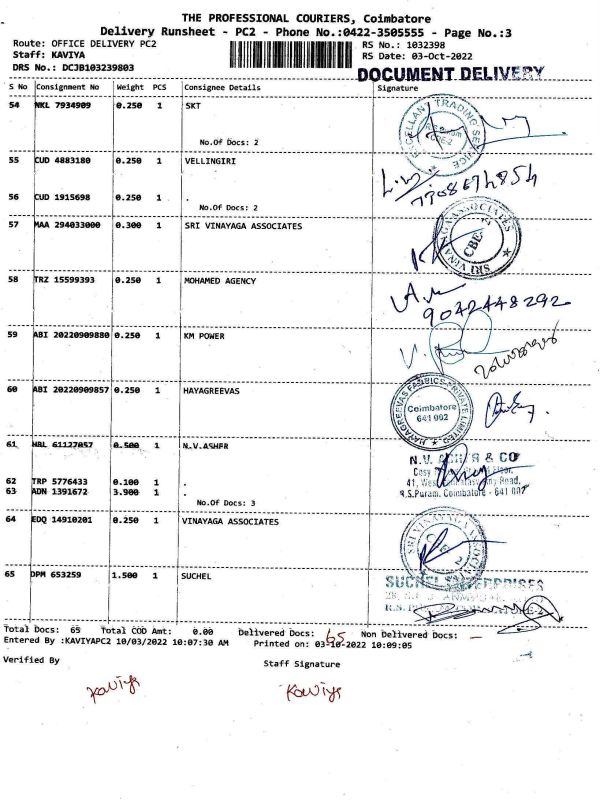 THE PROFESSIONAL COURIERS, Coimbatore
Delivery Runsheet - PC2 - Phone No.:0422-3505555 - Page No.:3
Route: OFFICE DELIVERY PC2 RS No.: 1032398
Staff: KAVIYA RS Date: 03-Oct-2022
DRS No.: DCJB103239803 DOCUMENT DELIVERY
S No Consignment No Weight PCS Consignee Details Signature
54 NKL 7934909 0.250 1 SKT
No.Of Docs: 2
55 CUD 4883180 0.250 1 VELLINGIRI
56 CUD 1915698 0.250 1 .
No.Of Docs: 2
57 MAA 294033000 0.300 1 SRI VINAYAGA ASSOCIATES
58 TRZ 15599393 0.250 1 MOHAMED AGENCY
9042448292
59 ABI 20220909880 0.250 1 KM POWER
60 ABI 20220909857 0.250 1 HAYAGREEVAS
HAYAGREEVAS FABBICS PRIVATE LIMITED
Coimbatore
641 002
61 HBL 61127057 0.500 1 N.V.ASHER
N.V. & CO
62 TRP 5776433 0.100 1 .
63 ADN 1391672 3.900 1 .
R.S.Puram. Coimbatore - 641 002
No.Of Docs: 3
64 EDQ 14910201 0.250 1 VINAYAGA ASSOCIATES
65 DPM 653259 1.500 1 SUCHEL
Total Docs: 65 Total COD Amt: 0.00 Delivered Docs: 65 Non Delivered Docs: -
Entered By :KAVIYAPC2 10/03/2022 10:07:30 AM Printed on: 03-10-2022 10:09:05
Verified By Staff Signature
Kaviya Kaviya